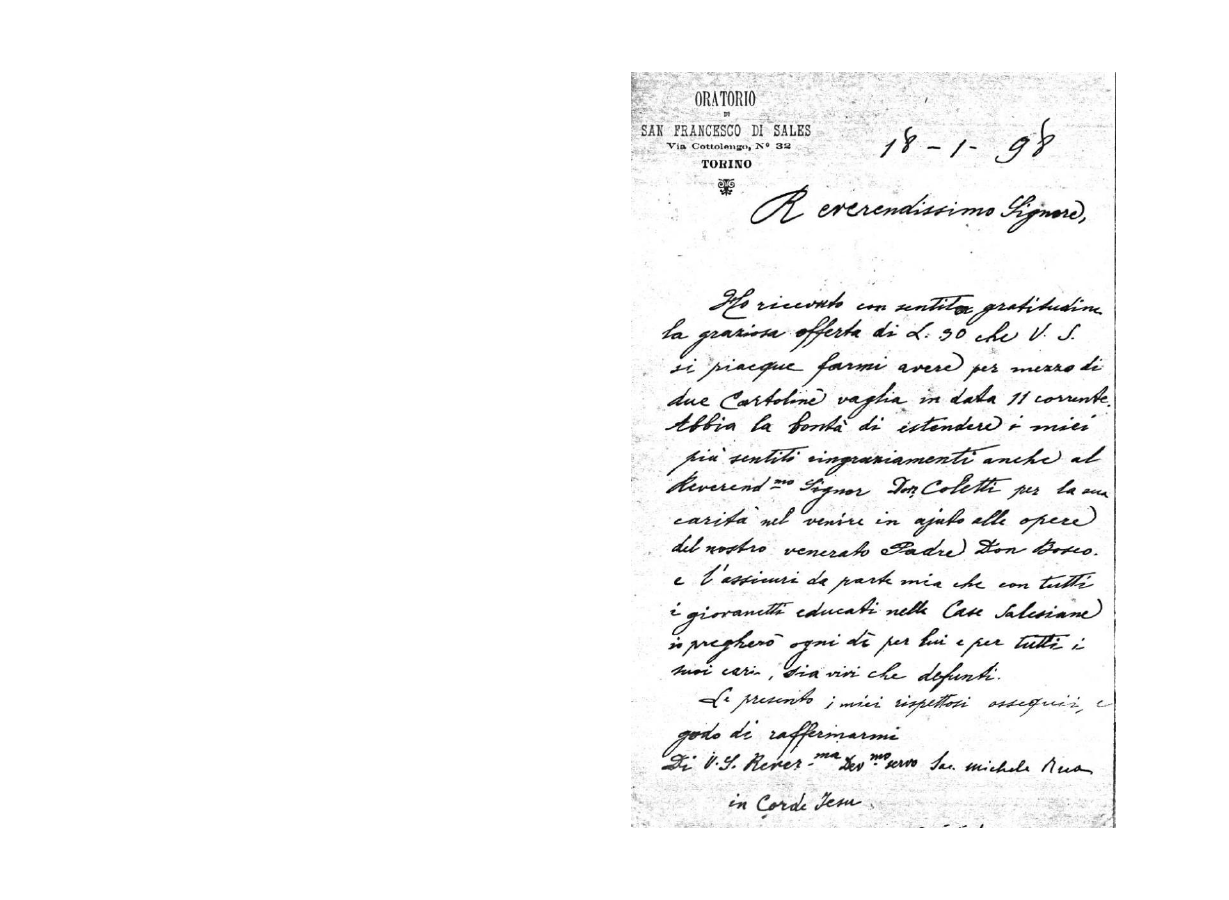 ORATORIO
DI
SAN FRANCESCO DI SALES
Via Cottolengo, Nº 32
TORINO
18-1-98
Reverendissimo Signore,
Ho ricevuto con sentita gratitudine
la graziosa offerta di L. 30 che V. S.
si piacque farmi avere per mezzo di
due Cartoline vaglia in data 11 corrente.
Abbia la bontà di estendere i miei
più sentiti ringraziamenti anche al
Reverendmo Signor Don Coletti per la sua
carità nel venire in ajuto alle opere
del nostro venerato Padre Don Bosco.
e l'assicuri da parte mia che con tutti
i giovanetti educati nelle Case Salesiane
io pregherò ogni dì per lui e per tutti i
suoi cari, sia vivi che defunti.
Le presento i miei rispettosi ossequii, e
godo di raffermarmi
Di V. S. Rever.ma Dev.mo servo Sac. Michele Rua
in Corde Jesu